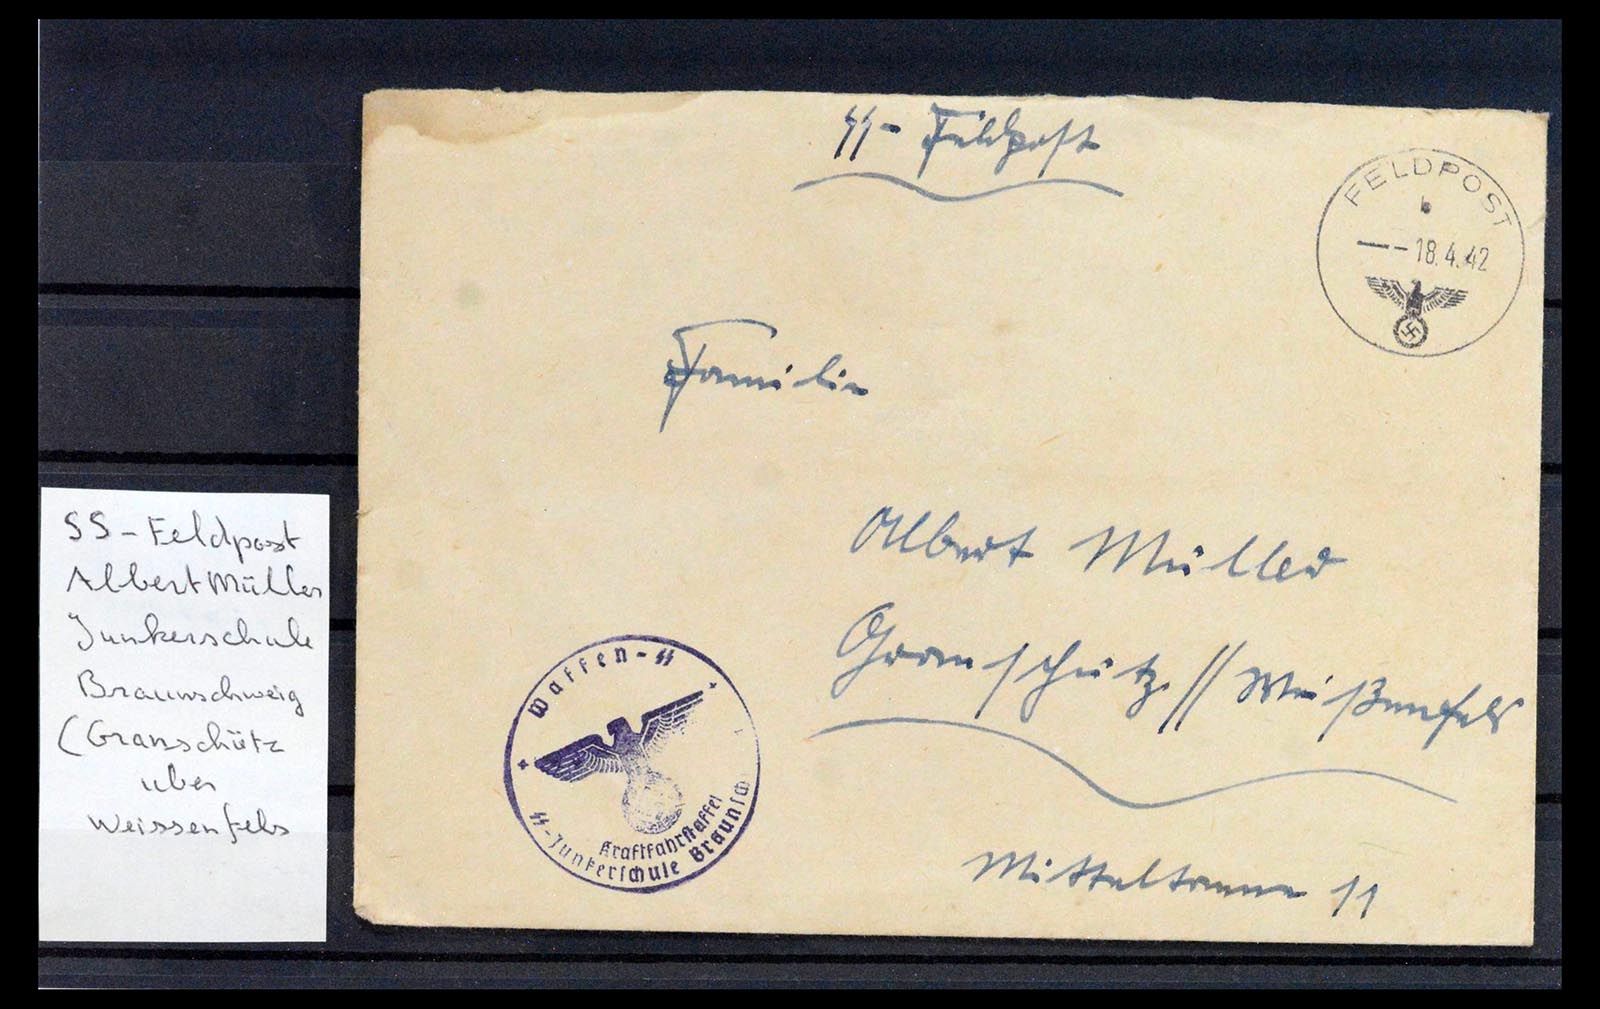 SS-Feldpost
FELDPOST
b
18.4.42
Familie
Albert Müller
Granschütz // Weißenfels
11
Waffen-SS
Kraftfahrstaffel
SS-Junkerschule Braunsch
SS-Feldpost
Albert Müller
Junkerschule
Braunschweig
(Granschütz
über
Weissenfels